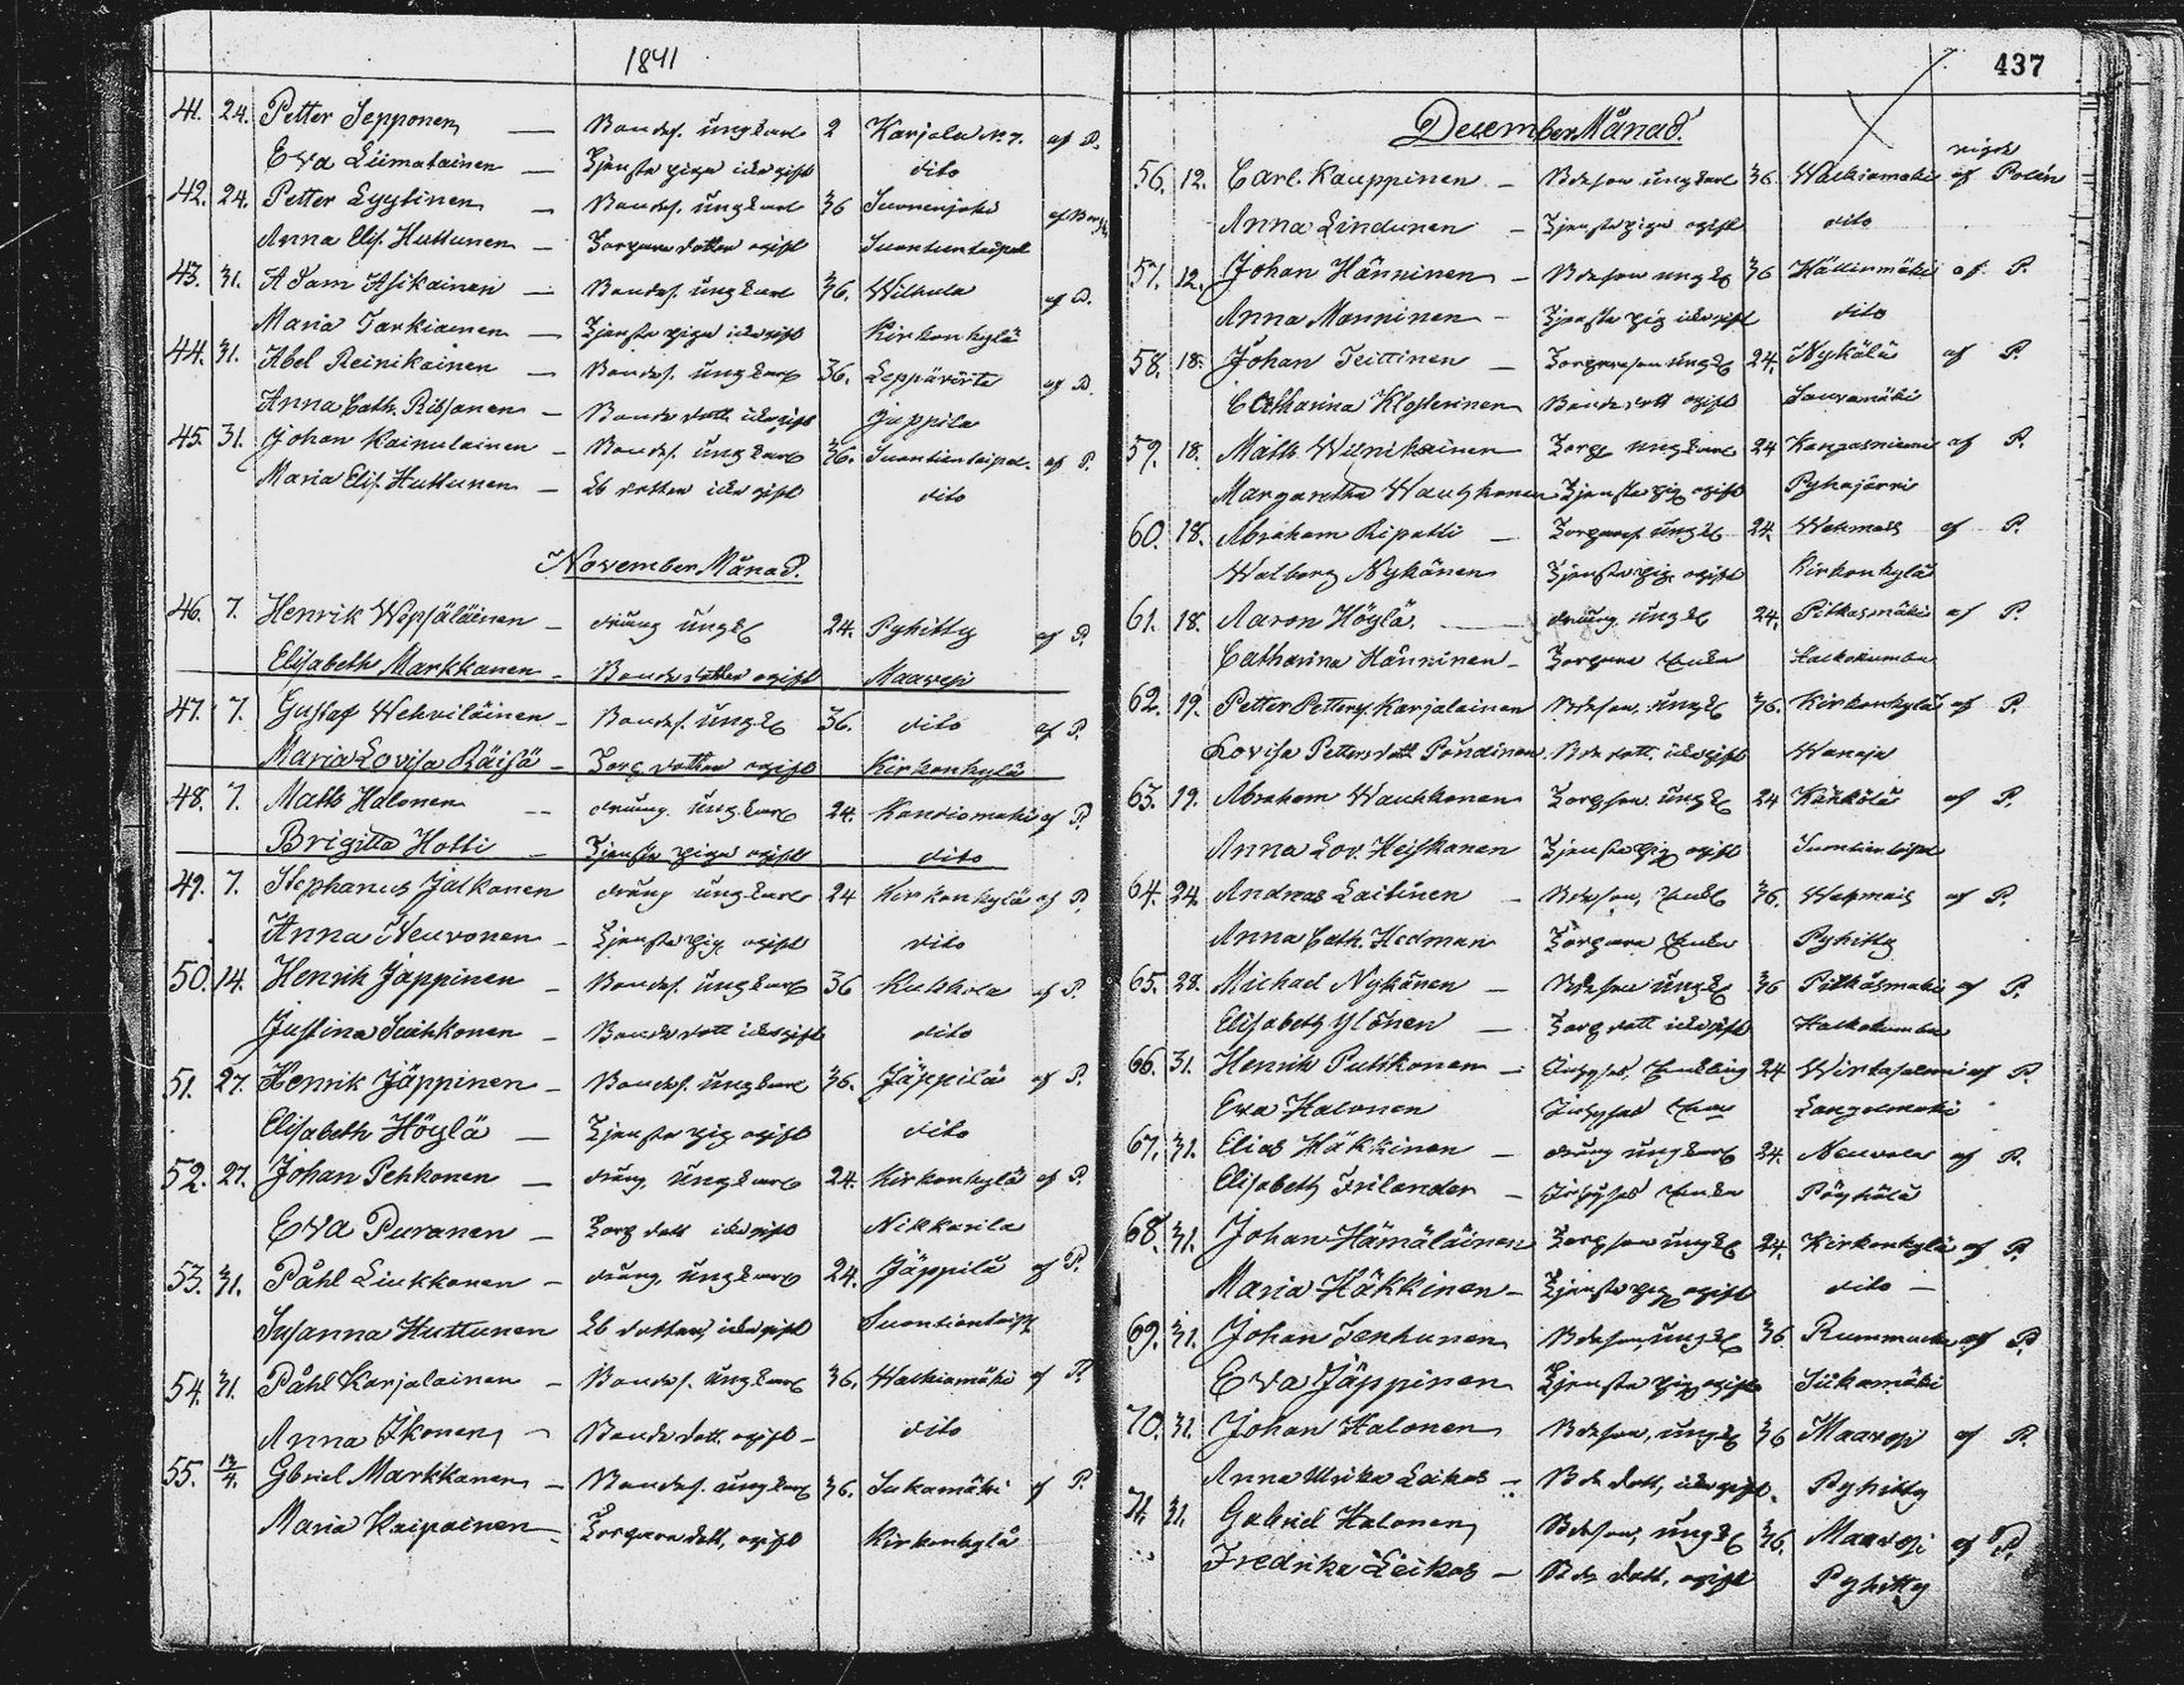 1841
41. 24. Petter Sepponen — Bondes. ungkarl 2 Karjala No 7. af P.
Eva Liimatainen — Tjenste piga icke gift dito
42. 24. Petter Lyytinen — Bondes. ungkarl 36 Suonenjoki
Anna Elis. Huttunen — Torpare dotter ogift Suontientaipal
43. 31. Adam Asikainen — Bondes. ungkarl 36. Wilhula af P.
Maria Tarkiainen — Tjenste piga icke gift Kirkonkylä
44. 31. Abel Reinikainen — Bondes. ungkarl 36. Leppävirta af P.
Anna Cath. Rissanen — Bonde dott. icke gift Jäppilä
45. 31. Johan Kainulainen — Bondes. ungkarl 36. Suontientaipal. af P.
Maria Elis. Huttunen — Lb dotter icke gift dito
November Månad.
46. 7. Henrik Wepsäläinen — dräng ungk 24. Pyhitty af P.
Elisabeth Markkanen — Bonde dotter ogift Maavesi
47. 7. Gustaf Wehviläinen — Bondes. ungk 36. dito af P.
Maria Lovisa Räisä — Torp dotter ogift Kirkonkylä
48. 7. Matts Halonen -- dräng ungkarl 24. af P.
Brigitta Hotti — Tjenste piga ogift dito
49. 7. Stephanus Jalkanen dräng ungkarl 24 Kirkonkylä af P.
Anna Neuvonen — Tjenste pig ogift dito
50. 14. Henrik Jäppinen — Bondes. ungkarl 36 af P.
Justina Suihkonen — Bonde dott icke gift dito
51. 27. Henrik Jäppinen — Bondes. ungkarl 36. Jäppilä af P.
Elisabeth Höylä — Tjenste pig ogift dito
52. 27. Johan Pehkonen — dräng, ungkarl 24. Kirkonkylä af P.
Eva Puranen — Torp dott icke gift Nikkarila
53. 31. Påhl Liukkonen — dräng, ungkarl 24. Jäppilä af P.
Susanna Huttunen Lb dotter, icke gift Suontientaip
54. 31. Påhl Karjalainen — Bondes. ungkarl 36. Walkiamäki af P.
Anna Ikonen — Bonde dott. ogift — dito
55. Gbriel Markkanen — Bondes. ungkarl 36. af P.
Maria Kaipainen — Torpare dott, ogift Kirkonkylä
437
December Månad.
56. 12. Carl Kauppinen — Bdeson ungkarl 36. Walkiamäki af Polén
Anna Lindunen — Tjenste piga ogift dito
57. 12. Johan Hänninen — Bdeson ungk 36 Hällinmäki af P.
Anna Manninen — Tjenste pig icke gift dito
58. 18. Johan Teittinen — Torpareson ungk 24. Nykälä af P.
Catharina Klosterinen Bonde dott ogift Sauvamäki
59. 18. Matts Wilnikainen Torp ungkarl 24 Kangasniemi af P.
Margaretha Tjenste pig ogift Pyhäjärvi
60. 18. Abraham Ripatti — Torpares ungk 24. af P.
Walborg Nykänen Tjenste pig ogift Kirkonkylä
61. 18. Aaron Höylä. — dräng ungk 24. Pitkäsmäki af P.
Catharina Hänninen — Torpare Enka Halkokumbu
62. 19. Petter Petters. Karjalainen Bdeson, ungk 36. Kirkonkylä af P.
Lovisa Petters dott Pöndinen. Bde dott. icke gift Wanaja
63. 19. Abraham Wauhkonen Torpson ungk 24 af P.
Anna Lov. Heiskanen Tjenste pig ogift Suontientaipal
64. 24. Andreas Laitinen — Bdeson, Enkl 36. af P.
Anna Cath. Hedman Torpare Enka Pyhitty
65. 28. Michael Nykänen — Bdeson ungk 36 Pitkäsmäki af P.
Elisabeth Ylönen — Torp dott icke gift Halkokumbu
66. 31. Henrik Putkonen — Inhyses, Enkling 24 Wirtasalmi af P.
Eva Halonen Inhyses Längelmäki
67. 31. Elias Häkkinen — dräng ungkarl 24. Neuvola af P.
Elisabeth Frilander — Inhyses Enka Pöyhölä
68. 31. Johan Hämäläinen Torpson ungk 24. Kirkonkylä af P.
Maria Häkkinen — Tjenste pig ogift dito —
69. 31. Johan Tenhunen Bdeson, ungk 36 af P.
Eva Jäppinen Tjenste pig ogift Siikamäki
70. 31. Johan Halonen Bdeson, ungk 36 Maavesi af P.
Anna Ulrika Leikas — Bde dott, icke gift. Pyhitty
71. 31. Gabriel Halonen Bdeson, ungk 36. Maavesi af P.
Fredrika Leikas — Bde dott, ogift Pyhitty